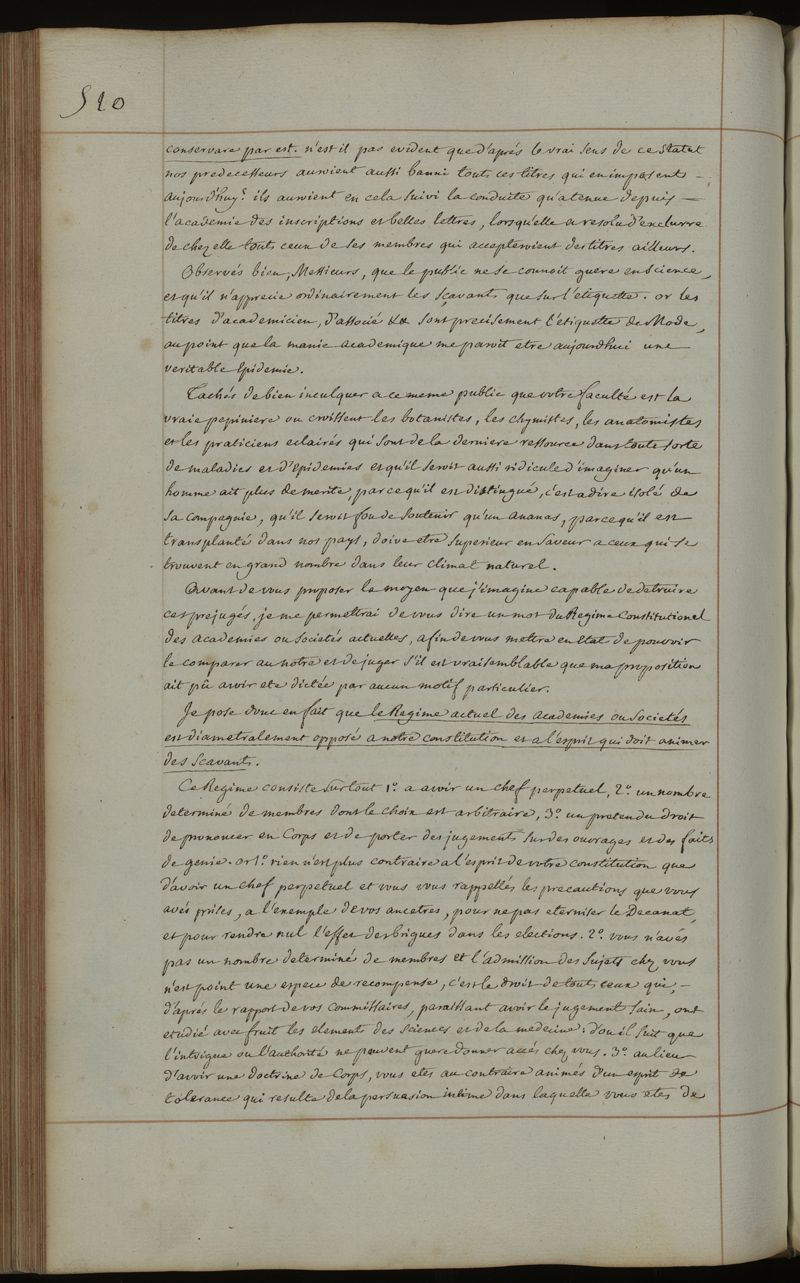 520
conservare par est. n'est il pas evident que d'aprés le vrai sens de ce Statut
nos predecesseurs auroient aussi banni touts ces titres qui en imposent —
aujourd'huy? ils auroient en cela suivi la conduite qu'a tenue depuis —
l'academie des inscriptions et belles lettres, lorsqu'elle a resolu d'exclurre
de chez elle touts ceux de ses membres qui accepteroient des titres ailleurs.
Observés bien, Messieurs, que le public ne se connoit guere en science,
et qu'il n'apprecie ordinairement les sçavants que sur l'etiquette. or les
titres d'academicien, d'associé &a sont precisement l'etiquette de Mode,
au point que la manie academique me paroit etre aujourdhui une
veritable Epidemie.
Tachés de bien inculquer a ce meme public que votre faculté est la
vraie pepiniere ou croissent les botanistes, les chymistes, les anatomistes
et les praticiens eclairés qui sont de la derniere ressource dans toute sorte
de maladies et d'Epidemies et qu'il seroit aussi ridicule d'imaginer qu'un
homme ait plus de merite, parce qu'il est distingué, c'est a dire isolé de
sa compagnie, qu'il seroit fou de soutenir qu'un ananas, parce qu'il est
transplanté dans nos pays, doive etre superieur en saveur a ceux qui se
trouvent en grand nombre dans leur climat naturel.
Avant de vous proposer le moyen que j'imagine capable de detruire
ces prejugés, je me permettrai de vous dire un mot du Regime constitutionel
des academies ou societés actuelles, afin de vous mettre en Etat de pouvoir
le comparer au notre et de juger s'il est vraisemblable que ma proposition
ait pû avoir eté dictée par aucun motif particulier.
Je pose donc en fait que le Regime actuel des academies ou Societés
est diametralement opposé a notre constitution et a l'esprit qui doit animer
des Scavants.
Ce Regime consiste surtout 1.° a avoir un chef perpetuel, 2.° un nombre
determiné de membres dont le choix est arbitraire, 3.° un pretendu droit
de prononcer en Corps et de porter des jugements sur des ouvrages et des faits
de genie. or 1.° rien n'est plus contraire a l'esprit de votre constitution que
d'avoir un chef perpetuel et vous vous rappellés les precautions que vous
avés prises, a l'exemple de vos ancetres, pour ne pas eterniser le Decanat,
et pour rendre nul l'effet des brigues dans les elections. 2.° vous n'avés
pas un nombre determiné de membres et l'admission des sujets chez vous
n'est point une espece de recompense, c'est le droit de touts ceux qui, —
d'aprés le rapport de vos commissaires, paraissant avoir le jugement sain, ont
etudié avec fruit les elements des sciences et de la medecine: d'ou il suit que
l'intrigue ou l'authorité ne peuvent guere donner accés chez vous. 3.° au lieu
d'avoir une doctrine de Corps, vous etes au contraire animés d'un esprit de
tolerance qui resulte de la persuasion intime dans laquelle vous etes de